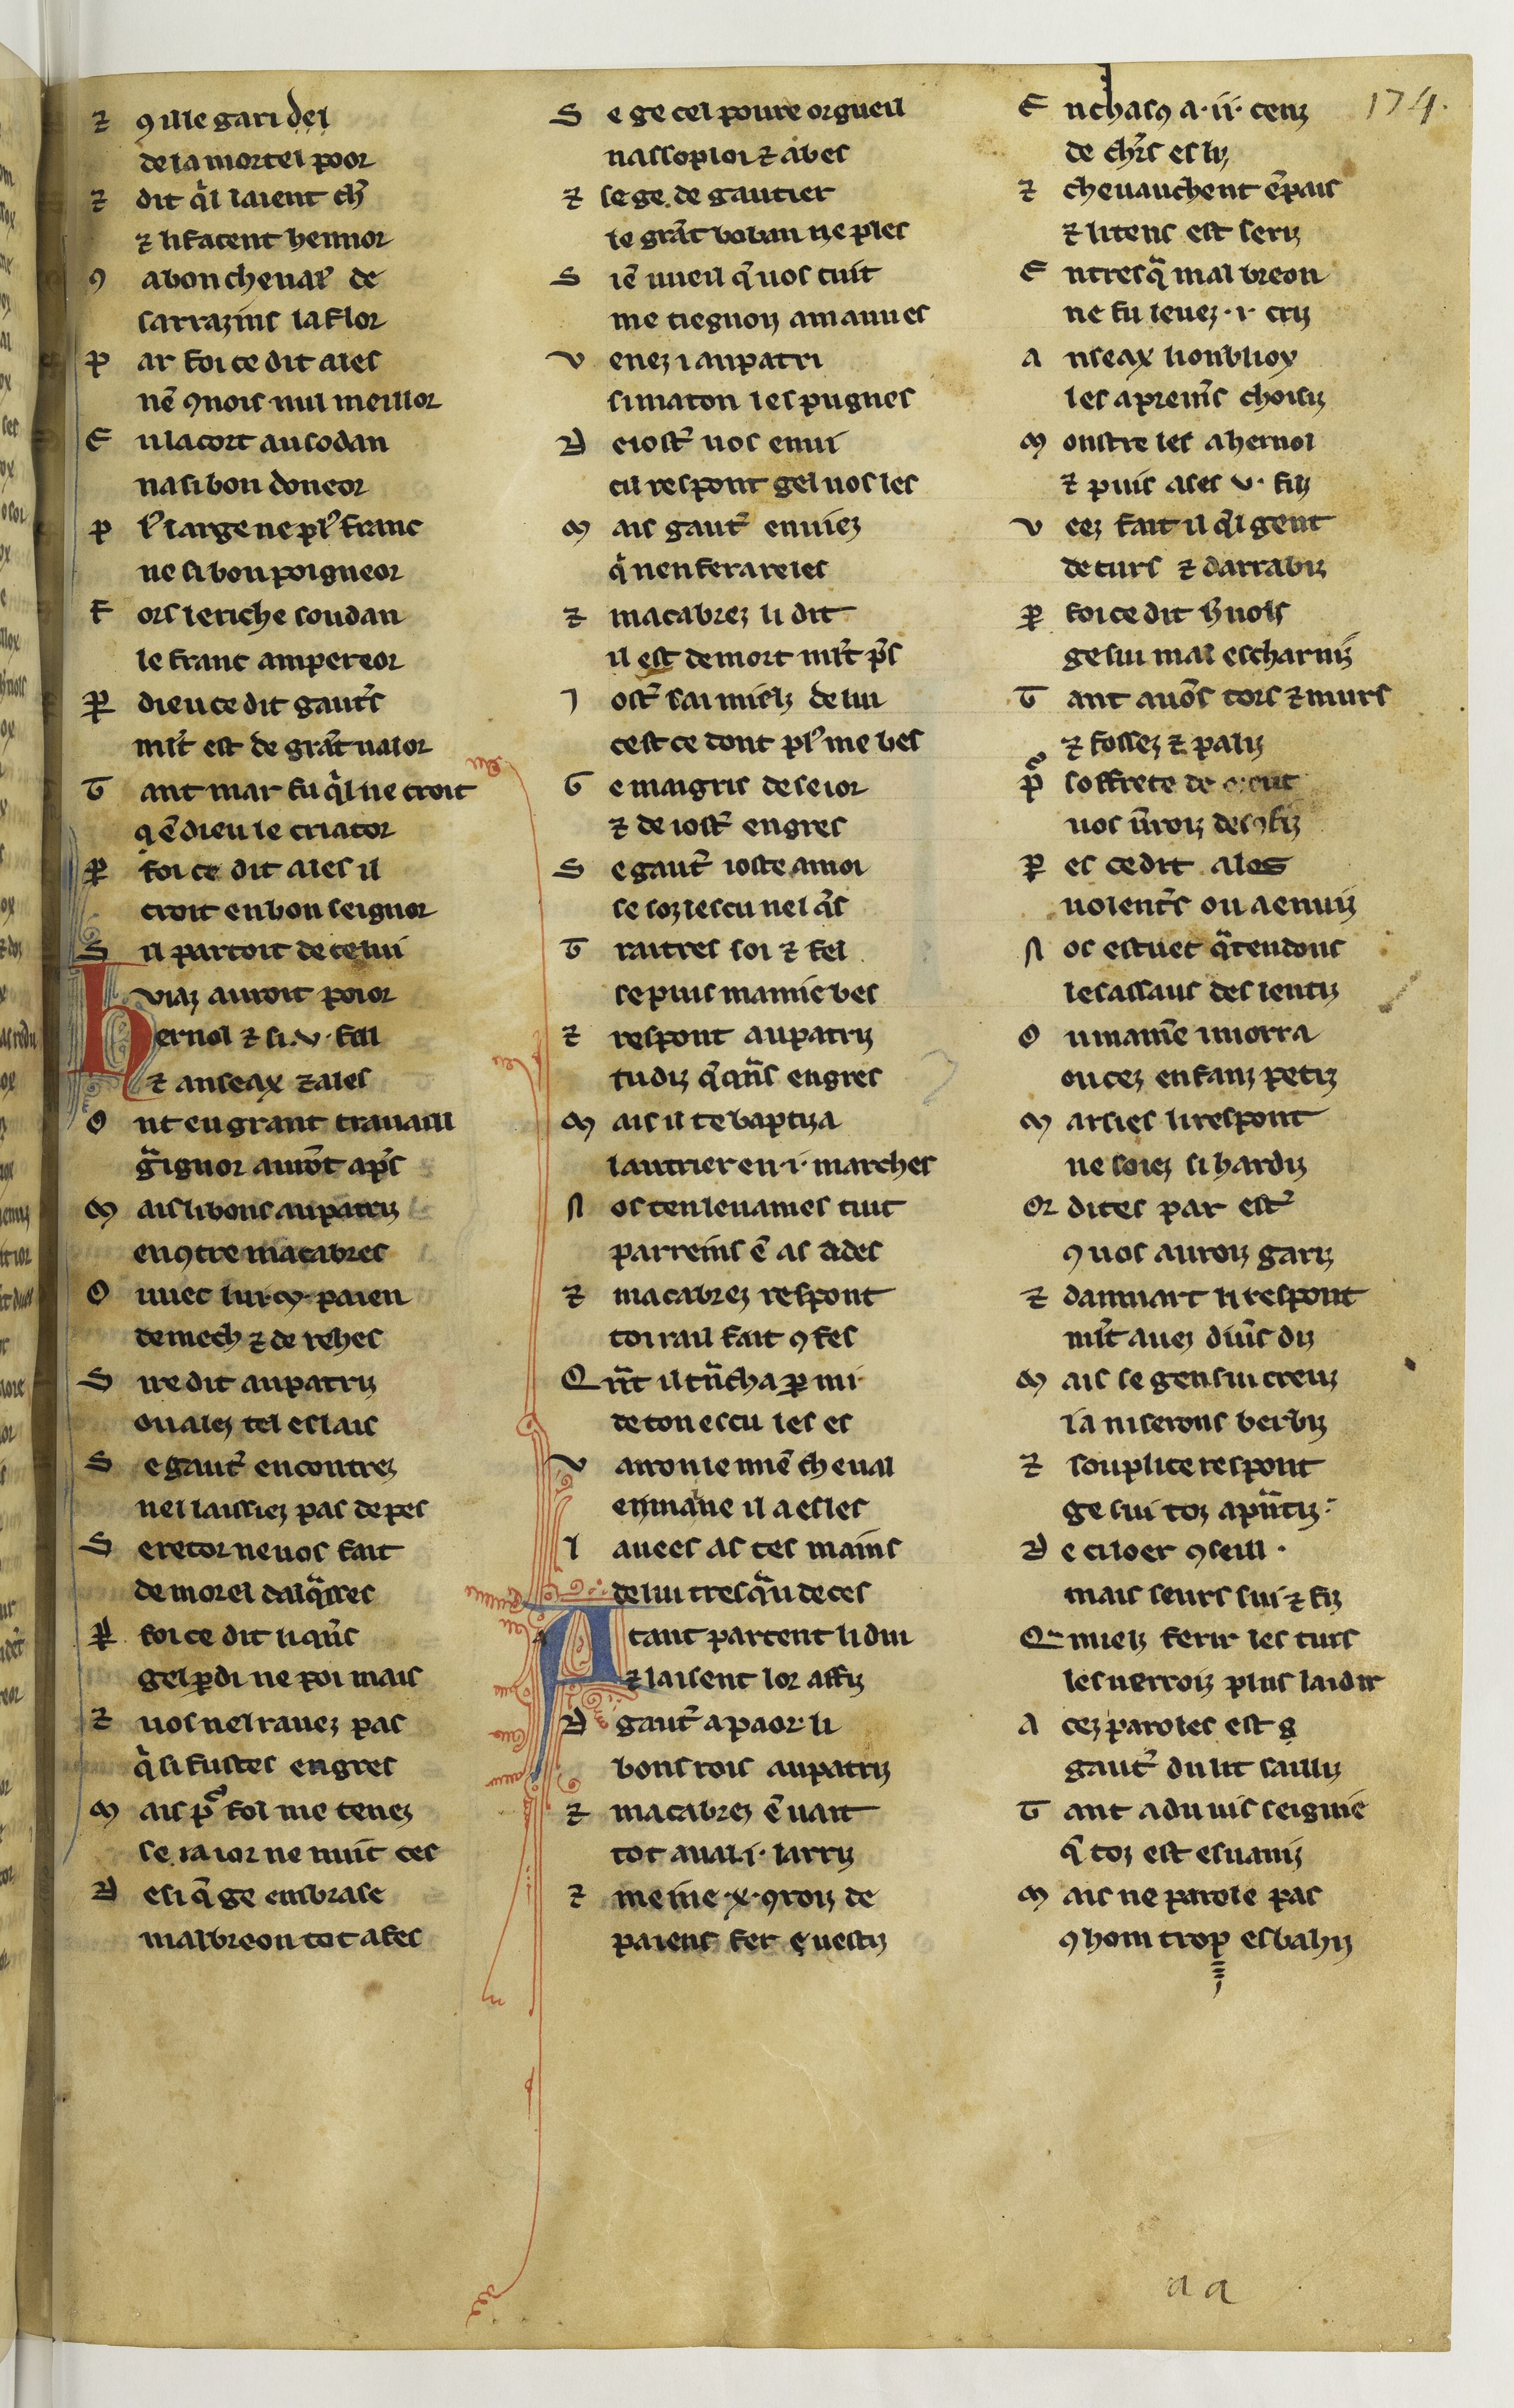 ⁊ ꝯ ille gari del
de la mortel poor
⁊ dit q̃l laient ch̃
⁊ li facent hennor
ꝯ a bon cheual̃ de
sarrazins la flor
p ar foi ce dit ales
nẽ ꝯnois nul meillor
E n la cort au sodan
na si bon doneor
p lꝰ large ne plꝰ franc
ne si bon poigneor
F ors le riche soudan
le franc ampereor
ꝑ dieu ce dit gaut̃s
ml̃t est de grãt ualor
T ant mar fu q̃l ne croit
q ẽ dieu le criator
ꝑ foi ce dit ales il
croit en bon seignor
S il partoit de celui
viaz auroit poior
hernol ⁊ si .v. fill
⁊ anseax ⁊ ales
O nt en grant trauaill
g̃ignor aurõt ap̃s
M ais li bons aupatriz
encꝯtre macabres
O uuec lui .cͫ. paien
de mech ⁊ de rehes
S ire dit aupatriz
ou alez tel eslais
S e gaut̃ encontrez
nel laissiez pas de pes
S e retor ne uos fait
de morel dalq̃res
ꝑ foi ce dit li cuñs
gel ꝑdi ne poi mais
⁊ uos nel rauez pas
q̃ si fustes engres
M ais pͦ fol me tenez
se ia ior ne nuit ces
D esi q̃ ge enbrase
malbreon tot a fes
S e ge cel poure orgueil
nassoploi ⁊ abes
⁊ se ge de gautier
le grãt boban ne ples
S iẽ uueil q̃ uos tuit
me tiegnoiz a mauues
V enez i aupatri
si maton les pugnes
D e iost̃ uos enui
cil respont gel uos les
M ais gaut̃ enuiez
q̃ nen ferare les
⁊ macabrez li dit
il est de mort ml̃t p̃s
I ost̃ sai mielz de lui
cest ce dont plꝰ me bes
G e maigris de seior
⁊ de iost̃ engres
S e gaut̃ ioste a moi
se soz lescu nel q̃s
T raitres soi ⁊ fel
se puis mamie bes
⁊ respont aupatriz
tu diz q̃ cuñs engres
M ais il te baptiza
lautrier en .i. marches
N os ten leuames tuit
parreins ẽ as dides
⁊ macabrez respont
toi rail fait ꝯfes
Q ñt il tñcha ꝑ mi
de ton escu les es
V airon le miẽ cheual
enmaine il a esles
I auees as tes mains
de lui tresq̃u deces
Atant partent li dui
⁊ laisent lor affiz
D gaut̃ a paor li
bons rois aupatriz
⁊ macabrez ẽ uait
tot aual .i. larriz
⁊ meine .x. ꝯroiz de
paiens fer uestiz
E nchasꝯ a .ii. cenz
de ch̃rs esliz
⁊ cheuauchent ẽ pais
⁊ li tens est seriz
E ntresq̃ mal breon
ne fu leuez .i. criz
A nseax li onblioy
les a premĩs choisiz
M onstre les a hernol
⁊ puis ases .v. filz
V eez fait il q̃l gent
de turs ⁊ darrabiz
ꝑ foi ce dit h̃nols
ge sui mal escharniz
T ant auõs tors ⁊ murs
⁊ fossez ⁊ paliz
pͦ soffrete de
uos ũroiz desꝯfiz
ꝑ es ce dit ales
uolent̃s ou a enuiz
N os estuet q̃tendons
les assaus des lentiz
O u mamẽ i morra
ou cez enfanz petiz
M arsies li respont
ne soiez si hardiz
Or dites par est̃
ꝯ uos auroiz gariz
⁊ damuart li respont
ml̃t auez diũs diz
M ais se gen sui creuz
ia ni serons berbiz
⁊ souplice respont
ge sui toz apñtiz
D e ciloer ꝯseill .
mais seurs sui ⁊ fiz
Q mielz ferir les turs
les uerroiz plus laidir
A cez paroles est g
gaut̃ du lit sailliz
T ant a du uis seignie
q̃ toz est esuaniz
M ais ne parole pas
ꝯ hom trop esbahiz
174.
a a